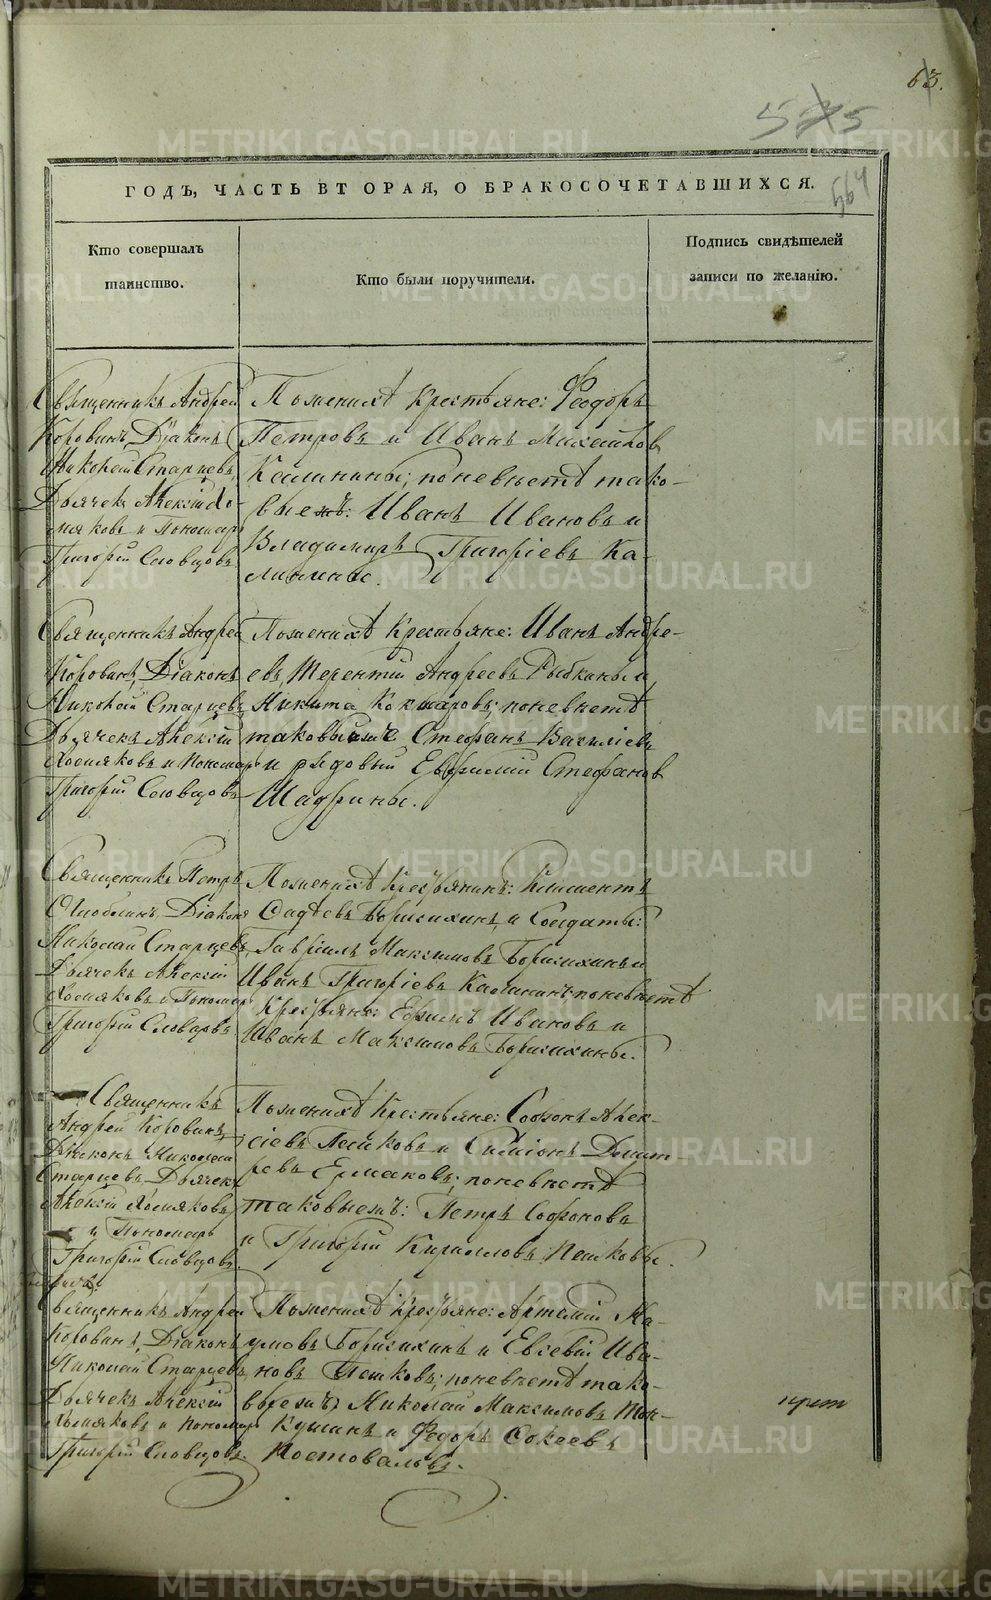 63.
575
564
ГОДЪ, ЧАСТЬ ВТОРАЯ, О БРАКОСОЧЕТАВШИХСЯ.
Кто совершалъ
таинство.
Кто были поручители.
Подпись свидѣтелей
записи по желанію.
Священникъ Андрей
Коровинъ, Діаконъ
Николай Старцевъ,
Дьячекъ Алексій Хо-
мяковъ и Пономарь
Григорій Словцовъ
По женихѣ Крестьяне: Ѳеодоръ
Петровъ и Иванъ Михайловъ
Калинины; по невѣстѣ тако-
вые жъ: Иванъ Ивановъ и
Владимиръ Григоріевъ Ка-
линины.
Священникъ Андрей
Коровинъ, Діаконъ
Николай Старцевъ,
Дьячекъ Алексій
Хомяковъ и Пономарь
Григорій Словцовъ
По женихѣ Крестьяне: Иванъ Андре-
евъ, Терентій Андреевъ Рыбкины и
Никита Кокшаровъ; по невѣстѣ
таковые же Стефанъ Василіевъ
и рядовый Евфимій Стефановъ
Шадрины.
Священникъ Петръ
Діаконъ
Николай Старцевъ,
Дьячекъ Алексій
Хомяковъ и Пономарь
Григорій Словцовъ
По женихѣ Крестьянинъ: Климентъ
Борисихинъ, и Солдаты:
Гавріилъ Максимовъ Борисихинъ и
Иванъ Григоріевъ Калининъ; по невѣстѣ
Крестьяне: Ефимъ Ивановъ и
Иванъ Максимовъ Борисихины.
Священникъ
Андрей Коровинъ,
Діаконъ Николай
Старцевъ, Дьячекъ
Алексій Хомяковъ,
и Пономарь
Григорій Словцовъ.
По женихѣ Крестьяне: Софонъ Алек-
сіевъ Пешковъ и Симіонъ Дмит
ревъ Ермаковъ; по невѣстѣ
таковыежъ: Петръ Софоновъ
и Григорій Кириловъ Пешковы.
Священникъ Андрей
Коровинъ, Діаконъ
Николай Старцевъ,
Дьячекъ Алексій
Хомяковъ и Пономарь
Григорій Словцовъ.
По женихѣ Крестьяне: Артемій На-
умовъ Борисихинъ и Евсевій Ива-
новъ Пешковъ; по невѣстѣ тако-
выежъ Николай Максимовъ Тон-
кушинъ и Ѳедоръ
Костовалъвъ.
METRIKI.GASO-URAL.RU